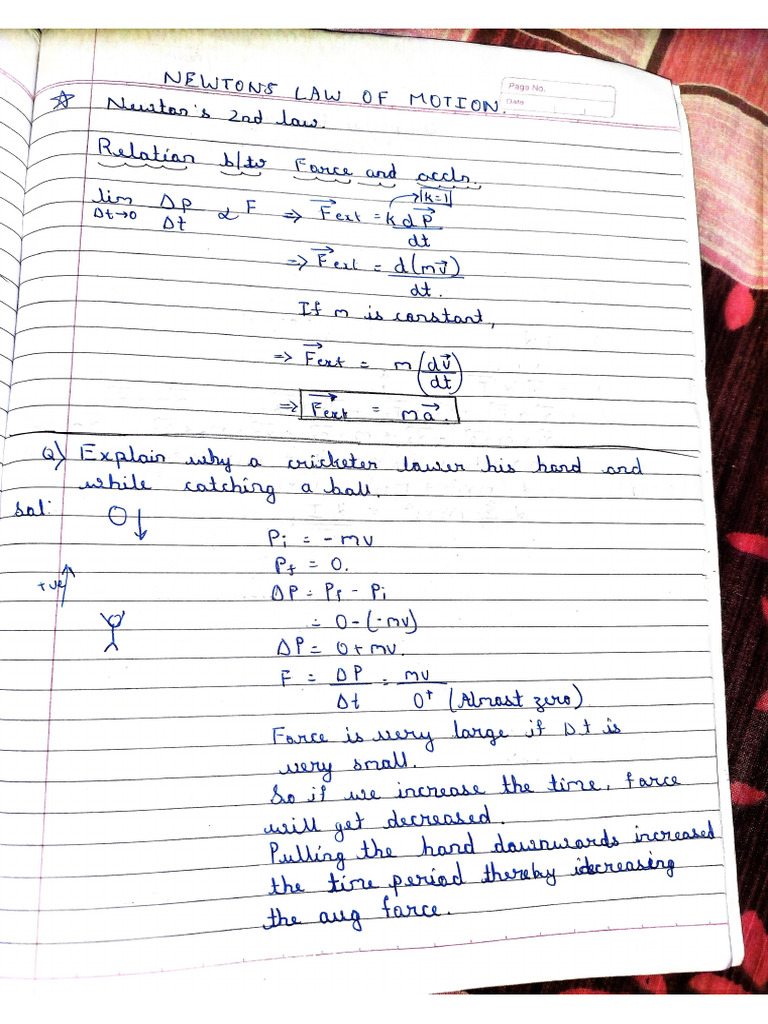 Page No.
Date
NEWTONS LAW OF MOTION.
☆ Newton's 2nd law.
Relation b/w Force and accln.
lim Δt→0 ΔP/Δt α F ⇒ F⃗ext = k dP⃗/dt → k=1
⇒ F⃗ext = d(mv⃗)/dt.
If m is constant,
⇒ F⃗ext = m(dv⃗/dt)
⇒ F⃗ext = ma⃗.
Q) Explain why a cricketer lower his hand and
while catching a ball.
Sol:
+ve
Pi = - mv
Pf = 0.
ΔP = Pf - Pi
= 0 - (-mv)
ΔP = 0 + mv.
F = ΔP/Δt = mv/0⁺ (Almost zero)
Force is very large if Δt is
very small.
So if we increase the time, force
will get decreased.
Pulling the hand downwards increased
the time period thereby decreasing
the avg force.